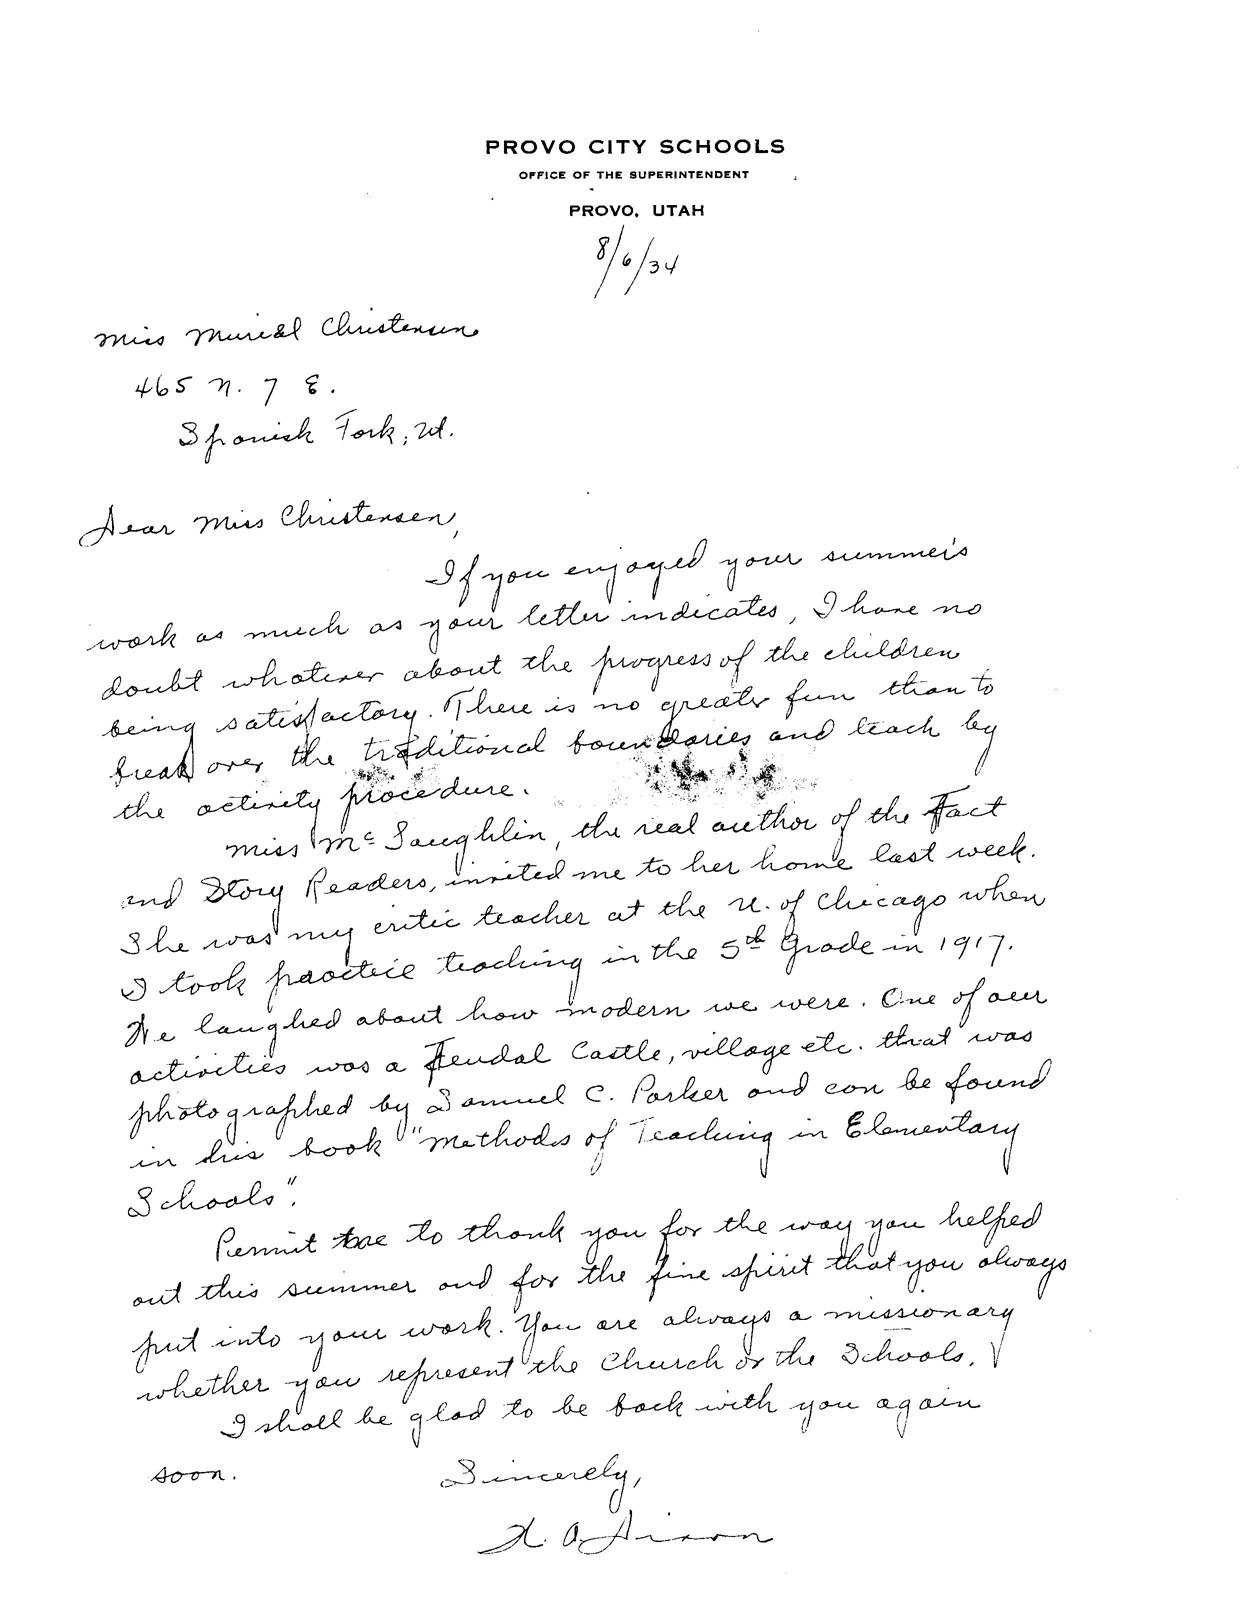 PROVO CITY SCHOOLS
OFFICE OF THE SUPERINTENDENT
PROVO, UTAH
8/6/34
Miss Murieal Christensen
465 N. 7 E.
Spanish Fork, Ut.
Dear Miss Christensen,
If you enjoyed your summer's
work as much as your letter indicates, I have no
doubt whatever about the progress of the children
being satisfactory. There is no greater fun than to
break over the traditional boundaries and teach by
the activity procedure.
Miss McLaughlin, the real author of the Fact
and Story Readers, invited me to her home last week.
She was my critic teacher at the U. of Chicago when
I took practice teaching in the 5th Grade in 1917.
We laughed about how modern we were. One of our
activities was a Feudal Castle, village etc. that was
photographed by Samuel C. Parker and can be found
in his book "Methods of Teaching in Elementary
Schools".
Permit me to thank you for the way you helped
out this summer and for the fine spirit that you always
put into your work. You are always a missionary
whether you represent the Church or the Schools.
I shall be glad to be back with you again
soon.
Sincerely,
H. A. Dixon